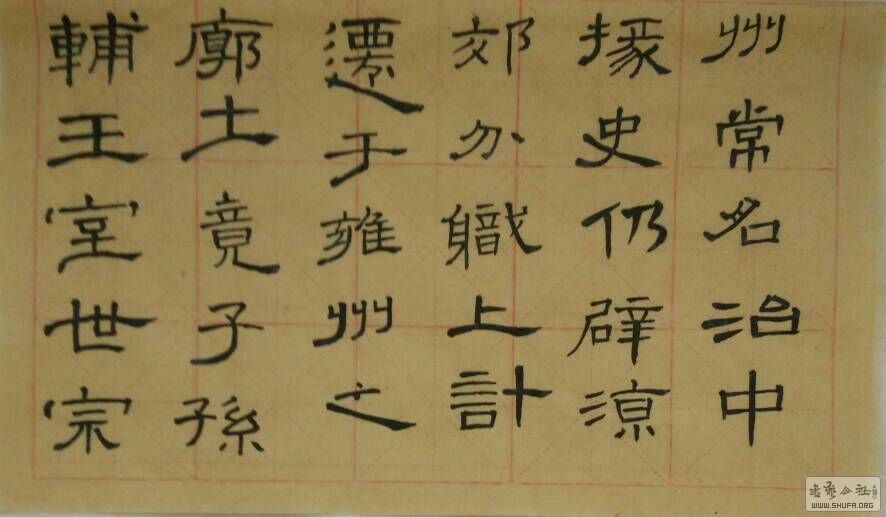 輔王室世宗
廓土竟子孫
遷于雍州之
郊分職上計
掾史仍辟涼
州常名治中
书艺公社
WWW.SHUFA.ORG